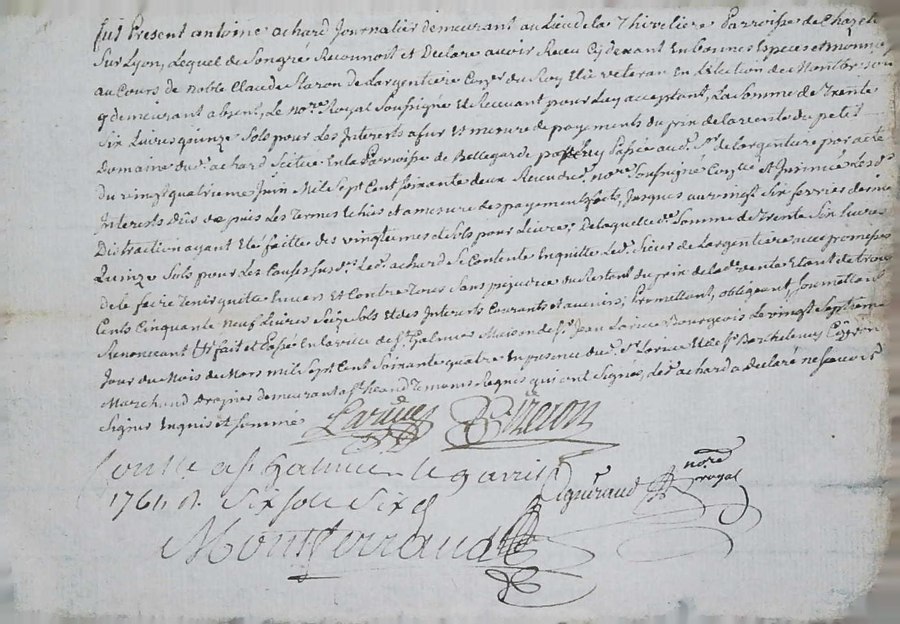 fut Present antoine achard Journalier demeurant au Lieu de la Thiveliere Parroisse de Chazele
Sur Lyon, Lequel de Son gré Reconnoit et Declare avoir Receu Cy devant En bonnes Especes et monnoye
au Cours de Noble Claude Staron de Largentiere Conser du Roy Elu veteran En L'élection de Montbrison
y demeurant absent, Le nore Royal Soussigné Et Recevant pour Luy acceptant, La Somme de Trente
Six Livres quinze Sols pour Les Interets a fur Et mesure de payements du prix de la vente du petit
Domaine dud. achard Scitué En la Parroisse de Bellegarde passée aud. Sr de Largentiere par acte
Du vingt quatrieme Juin Mil Sept Cent soixante deux Receu nore Soussigné Controllé Et Insinué Les ds
Interets Dûs depuis Les Termes Echus et amesure des payements faits, Jusques au vingt Six fevrier dernier
Distraction ayant Eté faitte des vingtiemes et Sols pour Livre, De laquelle de Somme de Trente Six Livres
Quinze Sols pour Les Causes Susd. Led. achard Se Contente Enquitte Led. Sieur de Largentiere avec promesses
De le faire Tenir quitte Envers Et Contre Tous Sans prejudice du Restant du prix de lad. vente Etant de trois
Cents Cinquante Neuf Livres Seize Sols Et des Interets Courants et avenir; Promettant, obligeant, Soumettant
Renonceant &c fait et Passé En la ville de St. Galmier Maison de Sr. Jean Larive Bourgeois Le vingt Septieme
Jour du Mois de Mars mil Sept Cent Soixante quatre En presence dud. Sr. Larive Et de Sr. Barthelemy
Marchand Drapier demeurant a St. heand Temoins Requis qui ont Signé, Led. achard a declaré ne Scavoir
Signer Enquis et Sommé
Larive
Controllé a St. Galmier Le 9 avril
1764 R. Six Sols Six d
nore
royal
Montferrand